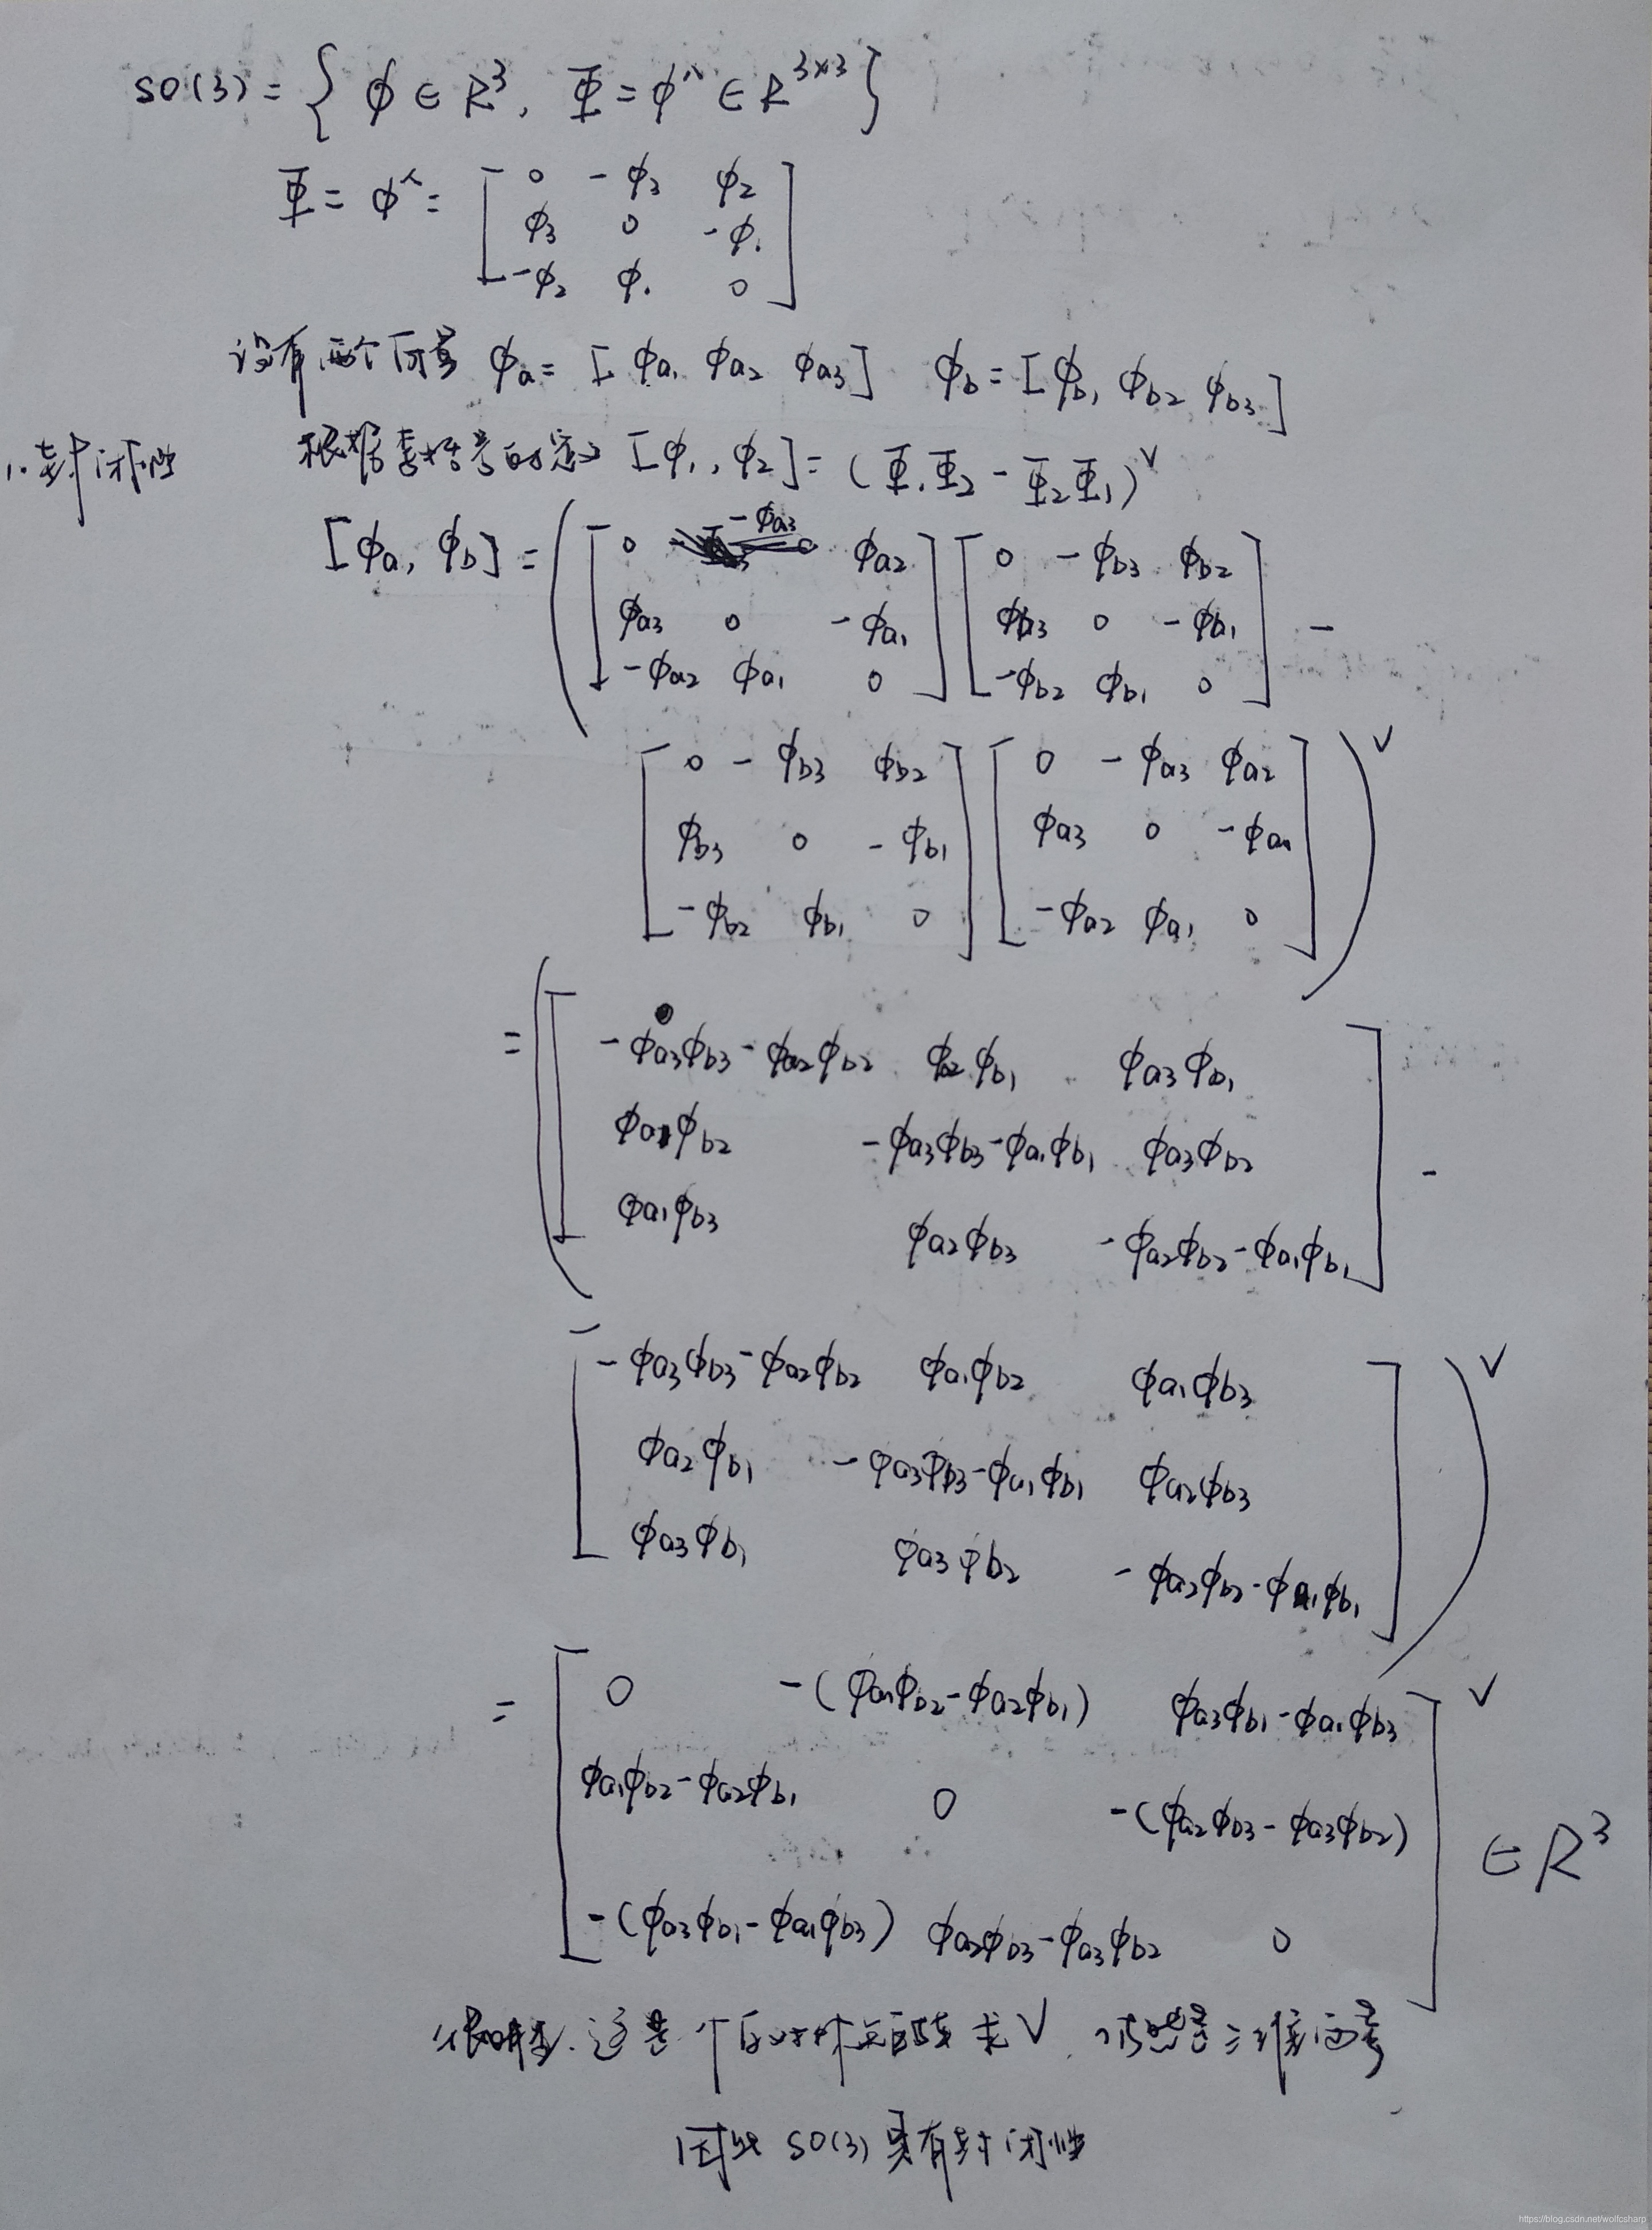 so(3) = { ϕ ∈ R^3, Φ = ϕ^∧ ∈ R^{3×3} }
Φ = ϕ^∧ = [ 0 -ϕ_3 ϕ_2
ϕ_3 0 -ϕ_1
-ϕ_2 ϕ_1 0 ]
设有两个向量 ϕ_a = [ ϕ_{a1} ϕ_{a2} ϕ_{a3} ] ϕ_b = [ ϕ_{b1} ϕ_{b2} ϕ_{b3} ]
1. 封闭性 根据李括号的定义 [ϕ_1, ϕ_2] = (Φ_1Φ_2 - Φ_2Φ_1)^∨
[ϕ_a, ϕ_b] = ( [ 0 -ϕ_{a3} ϕ_{a2} ] [ 0 -ϕ_{b3} ϕ_{b2} ]
ϕ_{a3} 0 -ϕ_{a1} ϕ_{b3} 0 -ϕ_{b1} -
-ϕ_{a2} ϕ_{a1} 0 -ϕ_{b2} ϕ_{b1} 0
[ 0 -ϕ_{b3} ϕ_{b2} ] [ 0 -ϕ_{a3} ϕ_{a2} ] )^∨
ϕ_{b3} 0 -ϕ_{b1} ϕ_{a3} 0 -ϕ_{a1}
-ϕ_{b2} ϕ_{b1} 0 -ϕ_{a2} ϕ_{a1} 0
= ( [ -ϕ_{a3}ϕ_{b3}-ϕ_{a2}ϕ_{b2} ϕ_{a2}ϕ_{b1} ϕ_{a3}ϕ_{b1}
ϕ_{a1}ϕ_{b2} -ϕ_{a3}ϕ_{b3}-ϕ_{a1}ϕ_{b1} ϕ_{a3}ϕ_{b2} ] -
ϕ_{a1}ϕ_{b3} ϕ_{a2}ϕ_{b3} -ϕ_{a2}ϕ_{b2}-ϕ_{a1}ϕ_{b1}
[ -ϕ_{a3}ϕ_{b3}-ϕ_{a2}ϕ_{b2} ϕ_{a1}ϕ_{b2} ϕ_{a1}ϕ_{b3} ] )^∨
ϕ_{a2}ϕ_{b1} -ϕ_{a3}ϕ_{b3}-ϕ_{a1}ϕ_{b1} ϕ_{a2}ϕ_{b3}
ϕ_{a3}ϕ_{b1} ϕ_{a3}ϕ_{b2} -ϕ_{a2}ϕ_{b2}-ϕ_{a1}ϕ_{b1}
= [ 0 -(ϕ_{a1}ϕ_{b2}-ϕ_{a2}ϕ_{b1}) ϕ_{a3}ϕ_{b1}-ϕ_{a1}ϕ_{b3} ]^∨
ϕ_{a1}ϕ_{b2}-ϕ_{a2}ϕ_{b1} 0 -(ϕ_{a2}ϕ_{b3}-ϕ_{a3}ϕ_{b2}) ∈ R^3
-(ϕ_{a3}ϕ_{b1}-ϕ_{a1}ϕ_{b3}) ϕ_{a2}ϕ_{b3}-ϕ_{a3}ϕ_{b2} 0
很明显, 这是一个反对称矩阵求∨, 仍然是三维向量
因此 so(3) 具有封闭性
https://blog.csdn.net/wolfcsharp